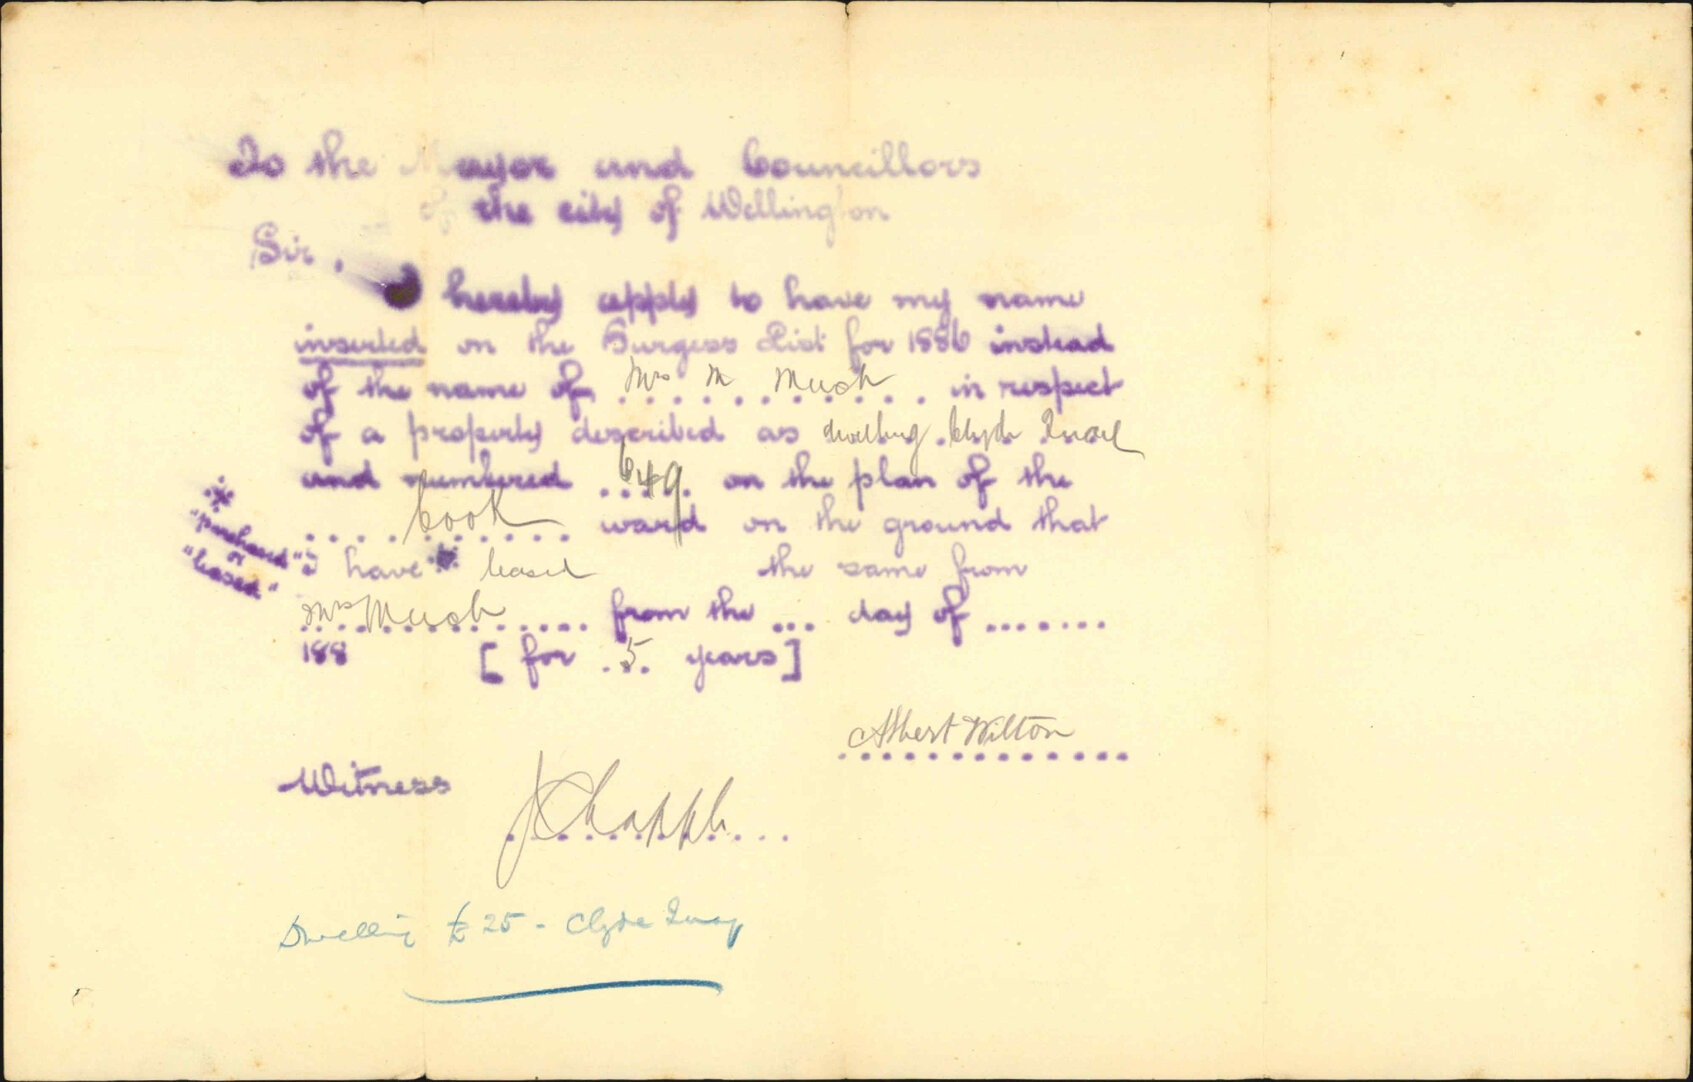 To the Mayor and Councillors
of the city of Wellington
Sir,
I hereby apply to have my name
inserted on the Burgess List for 1886 instead
of the name of Mrs M Muck in respect
of a property described as dwelling Clyde Quay
and numbered 649 on the plan of the
Cook ward on the ground that
* "purchased" or "leased"
I have * leased the same from
Mrs Muck from the ... day of .......
188 [for 5 years]
Albert Wilton
Witness J Chapple
Dwelling £25 - Clyde Quay